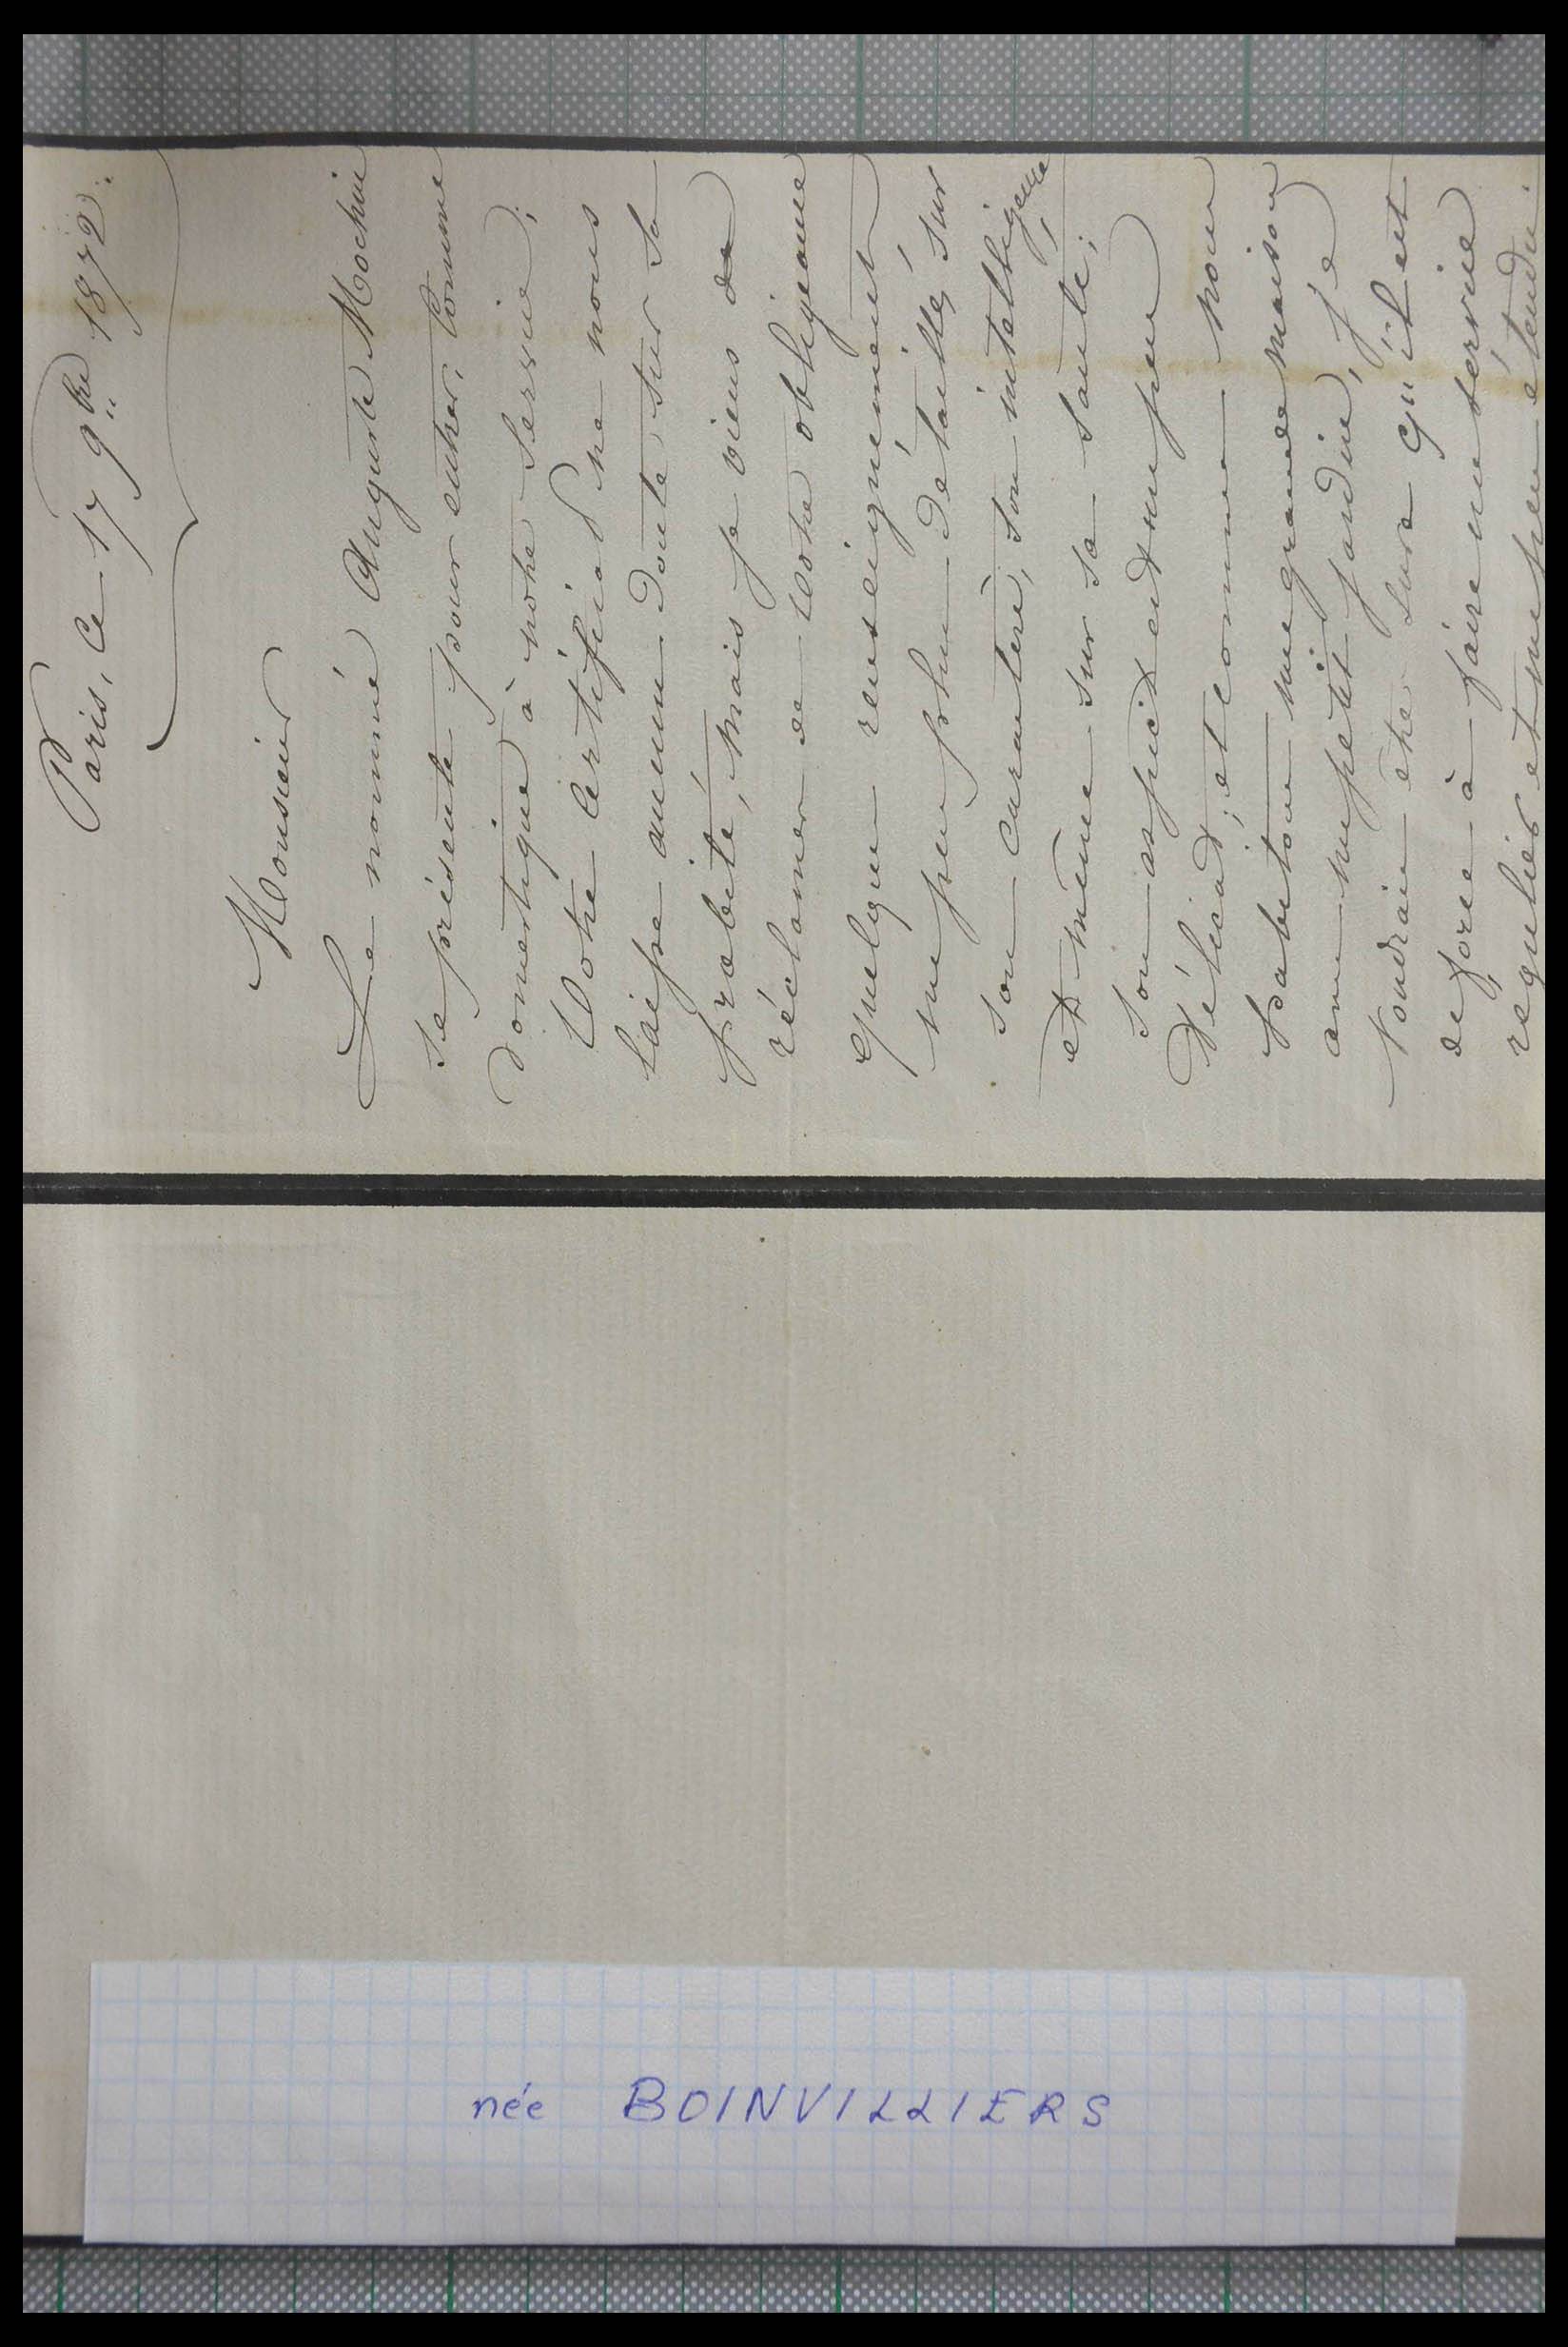 Paris, Ce 17 9bre 1872.
Monsieur
Le nommé Auguste Mochin
se présente pour entrer, Comme
domestique à notre service;
Votre Certificat ne nous
laisse aucun doute sur sa
probité, mais je viens de
réclamer de Votre obligeance
quelque renseignement
un peu plus détaillé, sur
son caractère, son intelligence,
et même sur sa santé;
son aspect est un peu
délicat; et comme nous
habitons une grande maison
avec un petit jardin, je
voudrais être sure qu'il est
de force à faire un service
régulier et un peu étendu.
née BOINVILLIERS